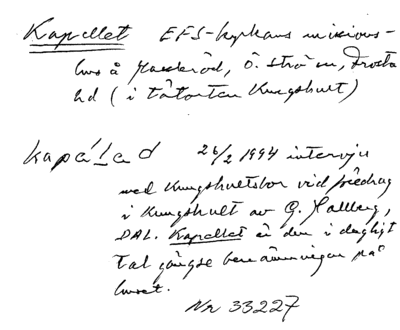 Kapellet EFS-kyrkans missions-
hus å Harseröd, Ö. Ström, Frosta
hd (i tätorten Kungshult)
kapä́lad 26/2 1994 intervju
med Kungshultsbor vid föredrag
i Kungshult av G. Hallberg,
DAL. Kapellet är den i dagligt
tal gängse benämningen på
huset.
Nr 33227